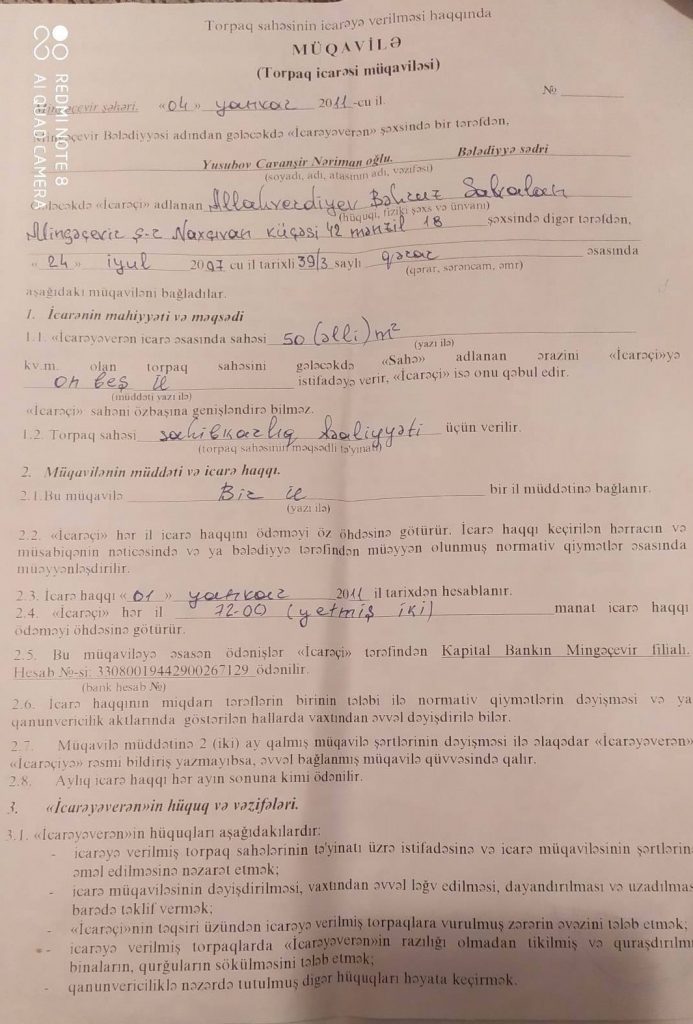 Torpaq sahəsinin icarəyə verilməsi haqqında
MÜQAVİLƏ
(Torpaq icarəsi müqaviləsi)
№
Mingəçevir şəhəri. «04» yanvar 2011-cu il.
Mingəçevir Bələdiyyəsi adından gələcəkdə «İcarəyəverən» şəxsində bir tərəfdən,
Yusubov Cavanşir Nəriman oğlu. Bələdiyyə sədri
(soyadı, adı, atasının adı, vəzifəsi)
gələcəkdə «İcarəçi» adlanan Allahverdiyev Bəhruz
(hüquqi, fiziki şəxs və ünvanı)
Mingəçevir ş-r Naxçıvan küçəsi 42 mənzil 18 şəxsində digər tərəfdən,
«24» iyul 2007 cu il tarixli 39/3 saylı qərar əsasında
(qərar, sərəncam, əmr)
aşağıdakı müqaviləni bağladılar.
1. İcarənin mahiyyəti və məqsədi
1.1. «İcarəyəverən icarə əsasında sahəsi 50 (əlli) m²
(yazı ilə)
kv.m. olan torpaq sahəsini gələcəkdə «Sahə» adlanan ərazini «İcarəçi»yə
on beş il istifadəyə verir, «İcarəçi» isə onu qəbul edir.
(müddəti yazı ilə)
«İcarəçi» sahəni özbaşına genişləndirə bilməz.
1.2. Torpaq sahəsi sahibkarlıq fəaliyyəti üçün verilir.
(torpaq sahəsinin məqsədli tə'yinatı)
2. Müqavilənin müddəti və icarə haqqı.
2.1.Bu müqavilə Bir il bir il müddətinə bağlanır.
(yazı ilə)
2.2. «İcarəçi» hər il icarə haqqını ödəməyi öz öhdəsinə götürür. İcarə haqqı keçirilən hərracın və
müsabiqənin nəticəsində və ya bələdiyyə tərəfindən müəyyən olunmuş normativ qiymətlər əsasında
müəyyənləşdirilir.
2.3. İcarə haqqı «01» yanvar 2011 il tarixdən hesablanır.
2.4. «İcarəçi» hər il 72-00 (yetmiş iki) manat icarə haqqı
ödəməyi öhdəsinə götürür.
2.5. Bu müqaviləyə əsasən ödənişlər «İcarəçi» tərəfindən Kapital Bankın Mingəçevir filialı.
Hesab №-si: 33080019442900267129 ödənilir.
(bank hesab №)
2.6. İcarə haqqının miqdarı tərəflərin birinin tələbi ilə normativ qiymətlərin dəyişməsi və ya
qanunvericilik aktlarında göstərilən hallarda vaxtından əvvəl dəyişdirilə bilər.
2.7. Müqavilə müddətinə 2 (iki) ay qalmış müqavilə şərtlərinin dəyişməsi ilə əlaqədar «İcarəyəverən»
«İcarəçiyə» rəsmi bildiriş yazmayıbsa, əvvəl bağlanmış müqavilə qüvvəsində qalır.
2.8. Aylıq icarə haqqı hər ayın sonuna kimi ödənilir.
3. «İcarəyəverən»in hüquq və vəzifələri.
3.1. «İcarəyəverən»in hüquqları aşağıdakılardır:
- icarəyə verilmiş torpaq sahələrinin tə'yinatı üzrə istifadəsinə və icarə müqaviləsinin şərtlərin
əməl edilməsinə nəzarət etmək;
- icarə müqaviləsinin dəyişdirilməsi, vaxtından əvvəl ləğv edilməsi, dayandırılması və uzadılmas
barədə təklif vermək;
- «İcarəçi»nin təqsiri üzündən icarəyə verilmiş torpaqlara vurulmuş zərərin əvəzini tələb etmək;
- icarəyə verilmiş torpaqlarda «İcarəyəverən»in razılığı olmadan tikilmiş və quraşdırılm
binaların, qurğuların sökülməsini tələb etmək;
- qanunvericiliklə nəzərdə tutulmuş digər hüquqları həyata keçirmək.
REDMI NOTE 8
AI QUAD CAMERA